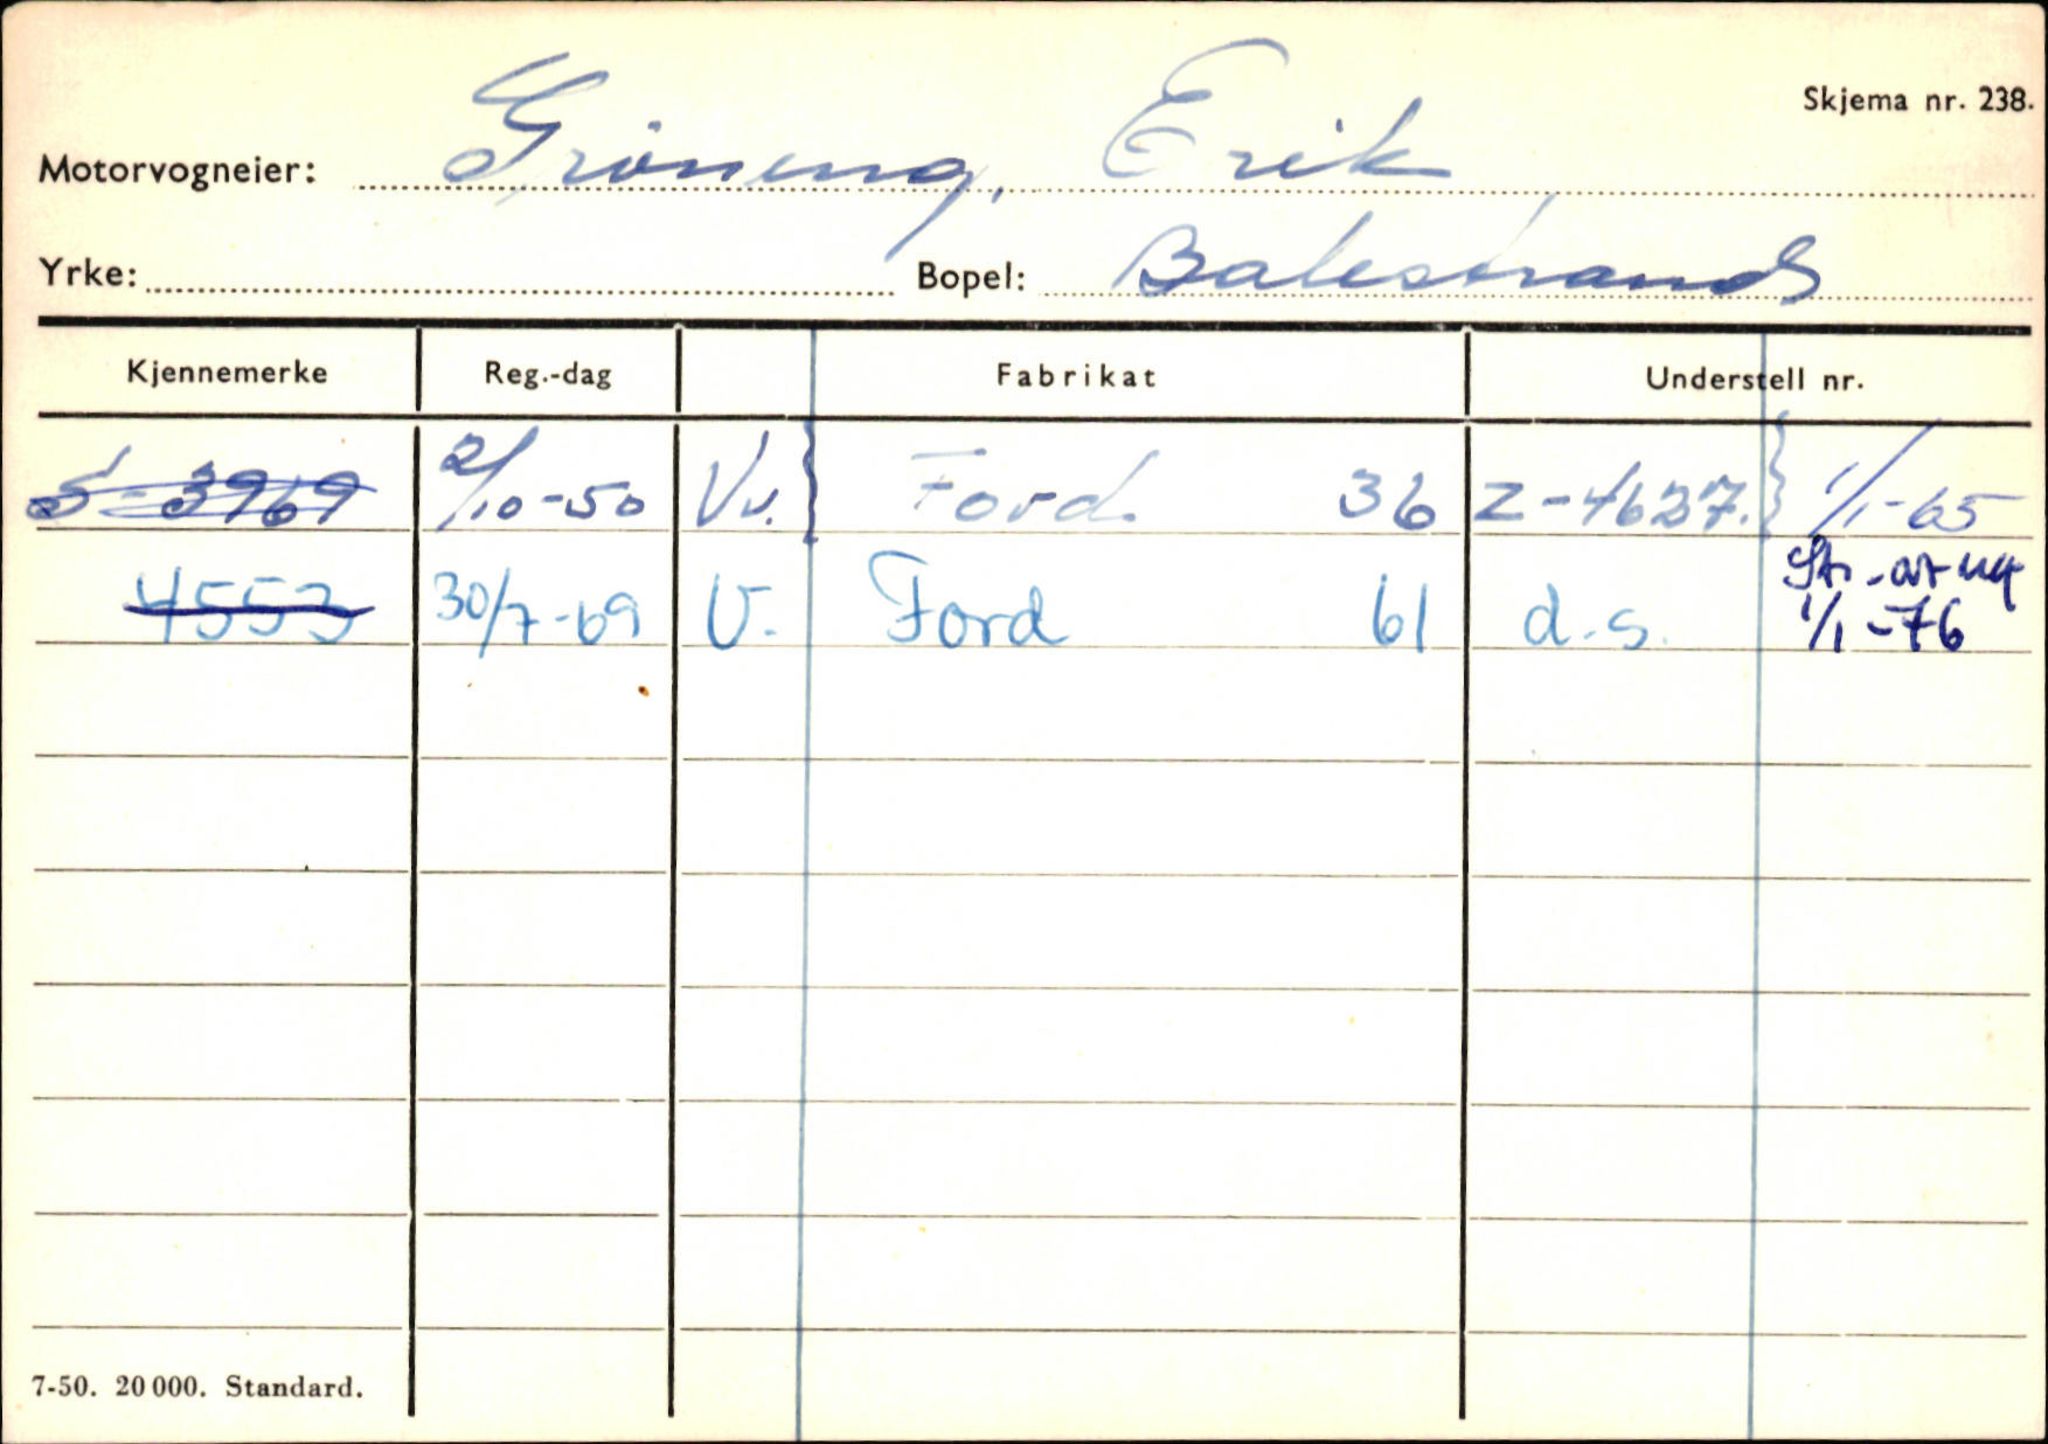 Skjema nr. 238.
Motorvogneier: Grøneng, Erik
Yrke: Bopel: Balestrand
Kjennemerke Reg.-dag Fabrikat Understell nr.
S-3969 2/10-50 Vv. Ford 36 Z-4627. 1/1-65
4553 30/7-69 V. Ford 61 d.s. 1/1-76
7-50. 20 000. Standard.